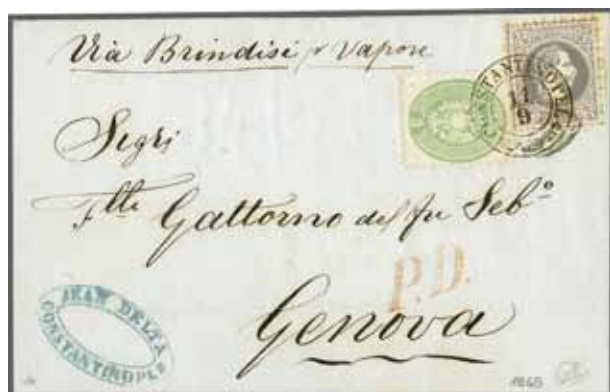 Via Brindisi p Vapore
CONSTANTINOPEL
11
9
Segri
Flli Gattorno del fu Seb.o
P.D.
Genova
JEAN DELTA
CONSTANTINOPLE
1868